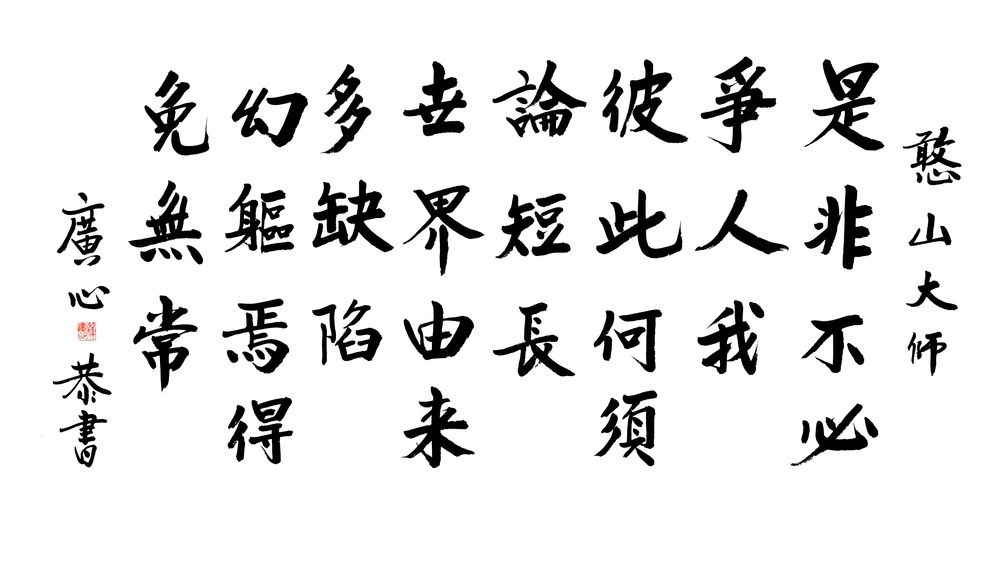 憨山大师
是非不必
爭人我
彼此何須
論短長
世界由来
多缺陷
幻軀焉得
免無常
廣心恭書